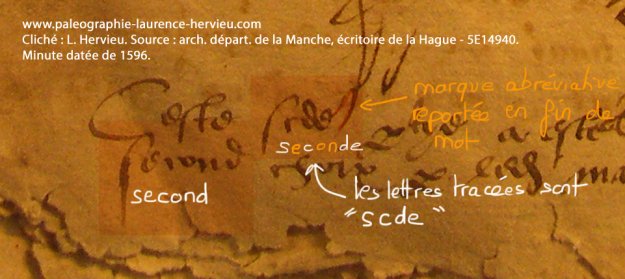 www.paleographie-laurence-hervieu.com
Cliché : L. Hervieu. Source : arch. départ. de la Manche, écritoire de la Hague - 5E14940.
Minute datée de 1596.
marque abréviative
reportée en fin de
mot
Ceste scde
seconde
second
second
les lettres tracées sont
"scde"